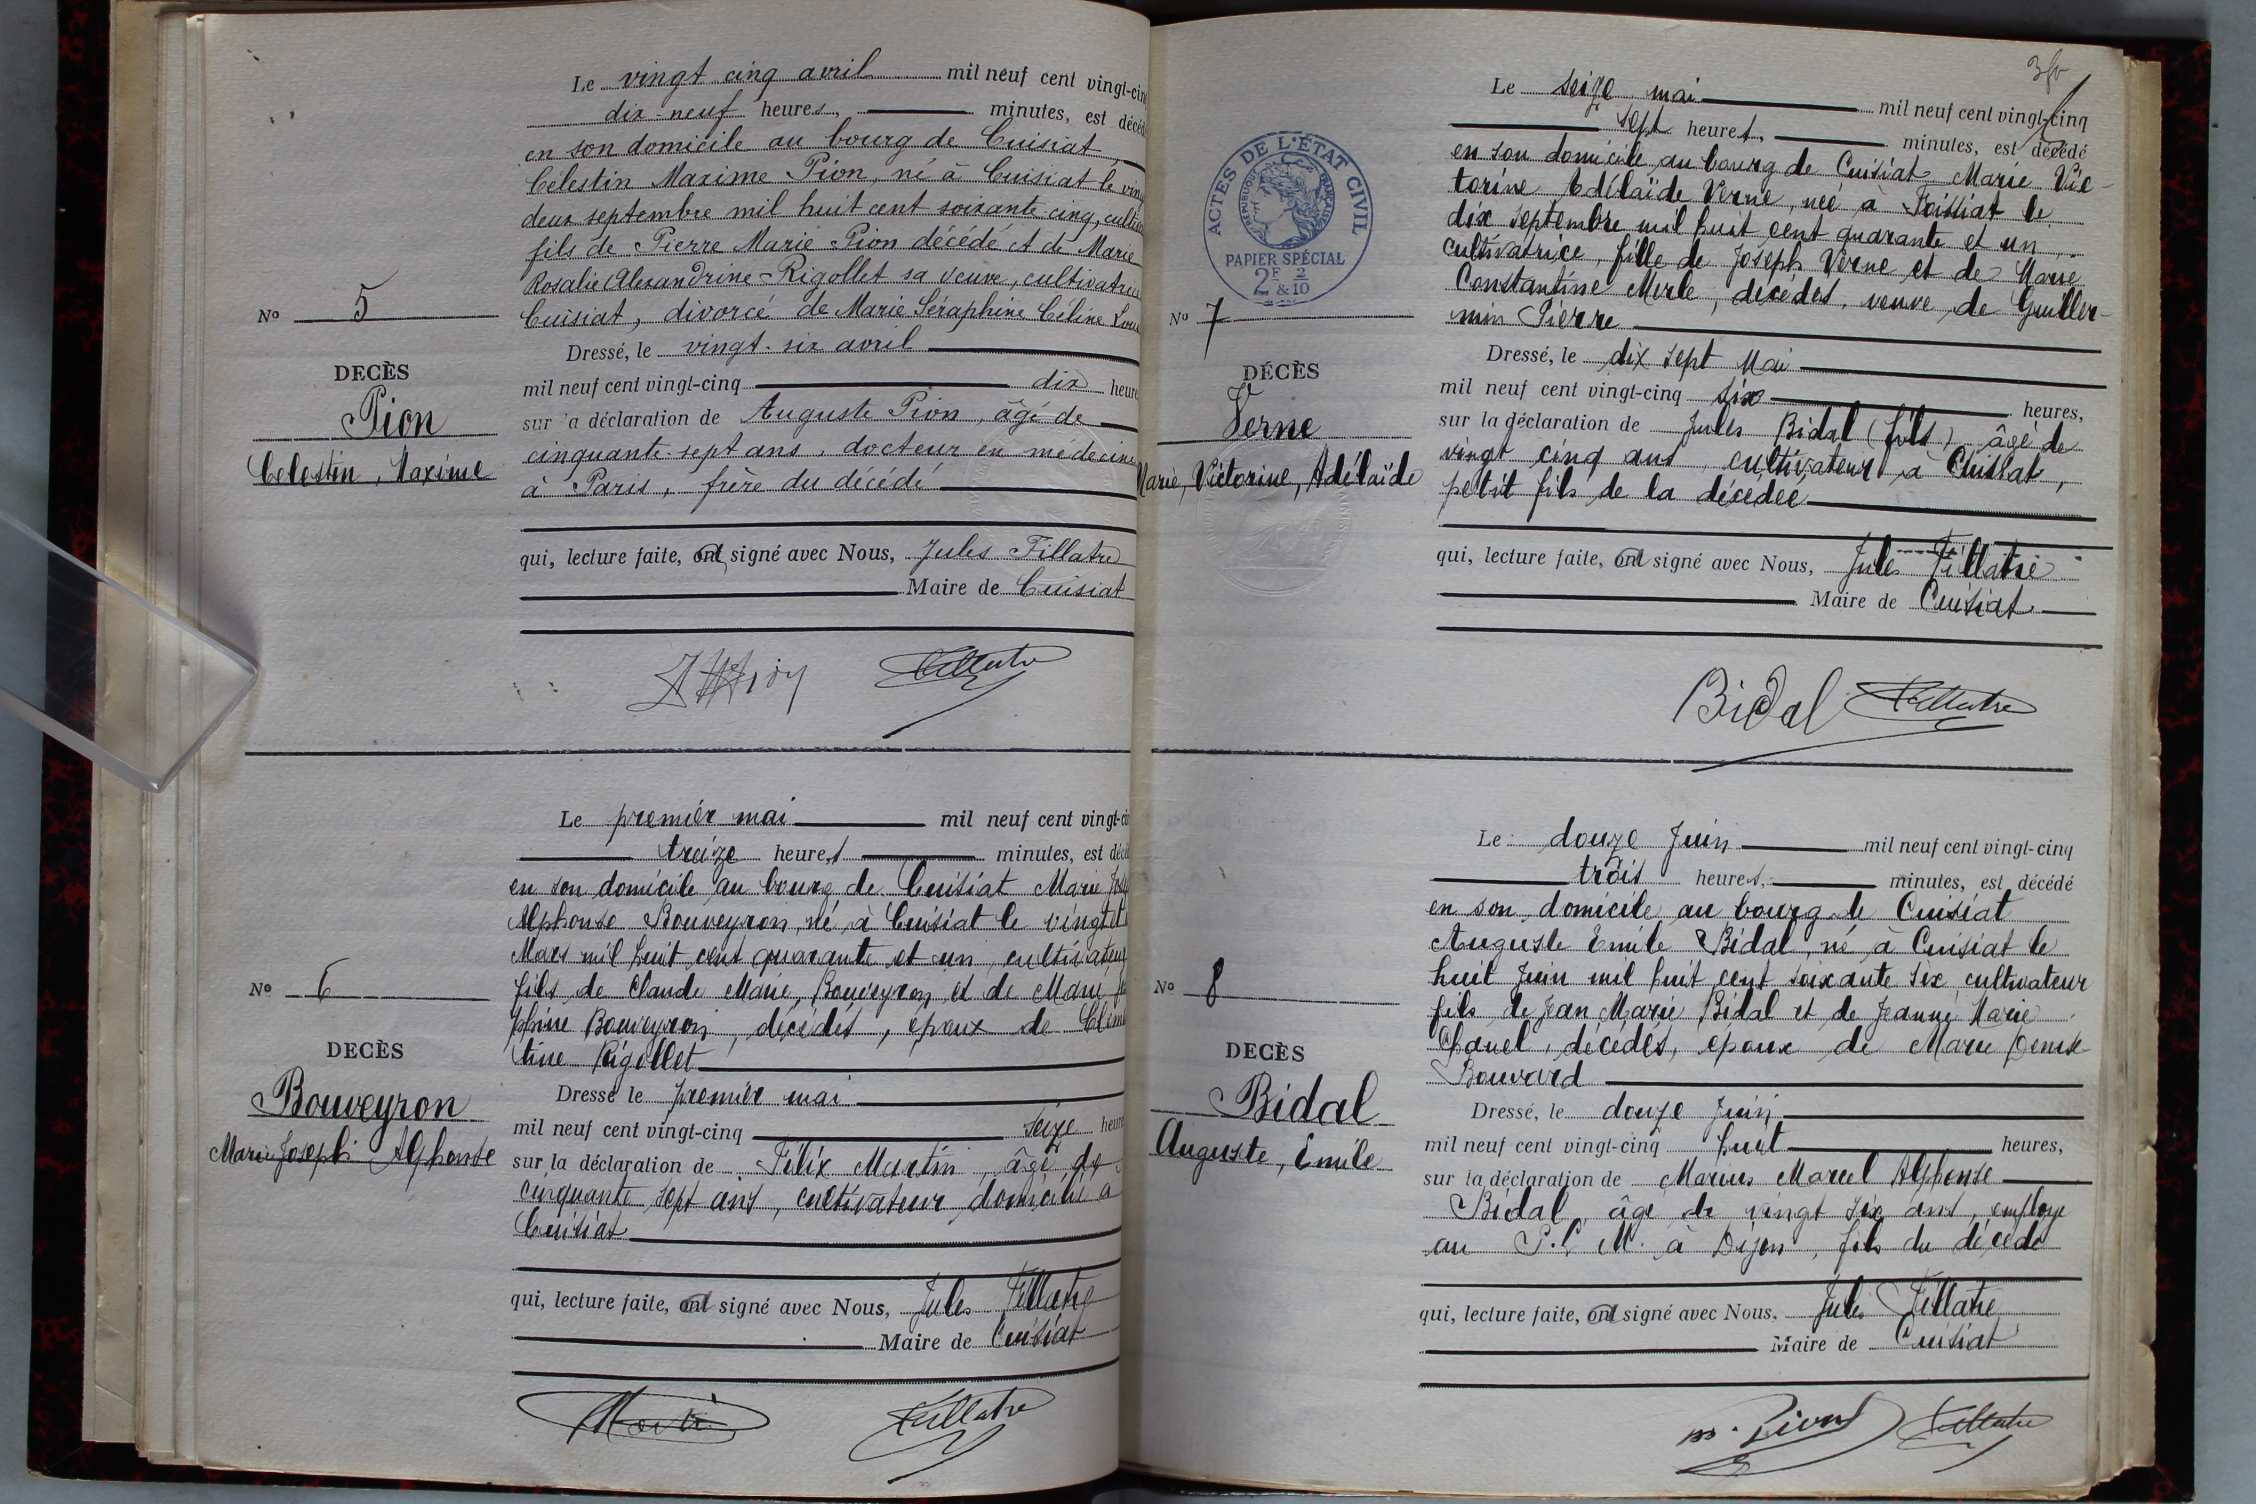 Le vingt cinq avril mil neuf cent vingt-cinq
dix-neuf heures, minutes, est décédé
en son domicile au bourg de Cuisiat,
Célestin Maxime Pion, né à Cuisiat le vingt
deux septembre mil huit cent soixante cinq, cultiv
fils de Pierre Marie Pion décédé et de Marie
Rosalie Alexandrine Rigollet sa veuve, cultivatrice
Cuisiat, divorcé de Marie Séraphine Céline
No 5
DECÈS
Pion
Célestin, Maxime
Dressé, le vingt-six avril
mil neuf cent vingt-cinq dix heures
sur la déclaration de Auguste Pion, âgé de
cinquante-sept ans, docteur en médecine
à Paris, frère du décédé
qui, lecture faite, ont signé avec Nous, Jules Fillatre
Maire de Cuisiat
Fillatre
Le premier mai mil neuf cent vingt-ci
treize heures minutes, est décé
en son domicile au bourg de Cuisiat Marie Jos
Alphonse Bouveyron, né à Cuisiat le vingt et
Mars mil huit cent quarante et un, cultivateur
fils de Claude Marie Bouveyron et de Marie
phine Bouveyron, décédés, époux de Clémen
tine Rigollet
No 6
DECÈS
Bouveyron
Marie Joseph Alphonse
Dressé le premier mai
mil neuf cent vingt-cinq seize heures
sur la déclaration de Félix Martin, âgé de
cinquante sept ans, cultivateur domicilié à
Cuisiat
qui, lecture faite, ont signé avec Nous, Jules Fillatre
Maire de Cuisiat
Martin Fillatre
Le seize mai mil neuf cent vingt-cinq
sept heures, minutes, est décédé
en son domicile au bourg de Cuisiat Marie Vic-
torine Adélaïde Verne, née à Foissiat le
dix septembre mil huit cent quarante et un,
cultivatrice, fille de Joseph Verne et de Marie
Constantine Merle, décédés, veuve de Guiller-
min Pierre
ACTES DE L'ÉTAT CIVIL
RÉPUBLIQUE FRANÇAISE
PAPIER SPÉCIAL
2F & 2/10
No 7
DÉCÈS
Verne
Marie, Victorine, Adélaïde
Dressé, le dix sept Mai
mil neuf cent vingt-cinq six heures,
sur la déclaration de Jules Bidal (fils), âgé de
vingt cinq ans, cultivateur à Cuisiat,
petit fils de la décédée
qui, lecture faite, ont signé avec Nous, Jules Fillatre
Maire de Cuisiat
Bidal Fillatre
Le douze Juin mil neuf cent vingt-cinq
trois heures, minutes, est décédé
en son domicile au bourg de Cuisiat
Auguste Emile Bidal, né à Cuisiat le
huit Juin mil huit cent soixante six cultivateur
fils de Jean Marie Bidal et de Jeanne Marie
Chanel, décédés, époux de Marie Denise
Bouvard
No 8
DECÈS
Bidal
Auguste, Emile
Dressé, le douze Juin
mil neuf cent vingt-cinq huit heures,
sur la déclaration de Marius Marcel Alphonse
Bidal, âgé de vingt six ans, employé
au P. L M. à Dijon, fils du décédé
qui, lecture faite, ont signé avec Nous, Jules Fillatre
Maire de Cuisiat
Fillatre